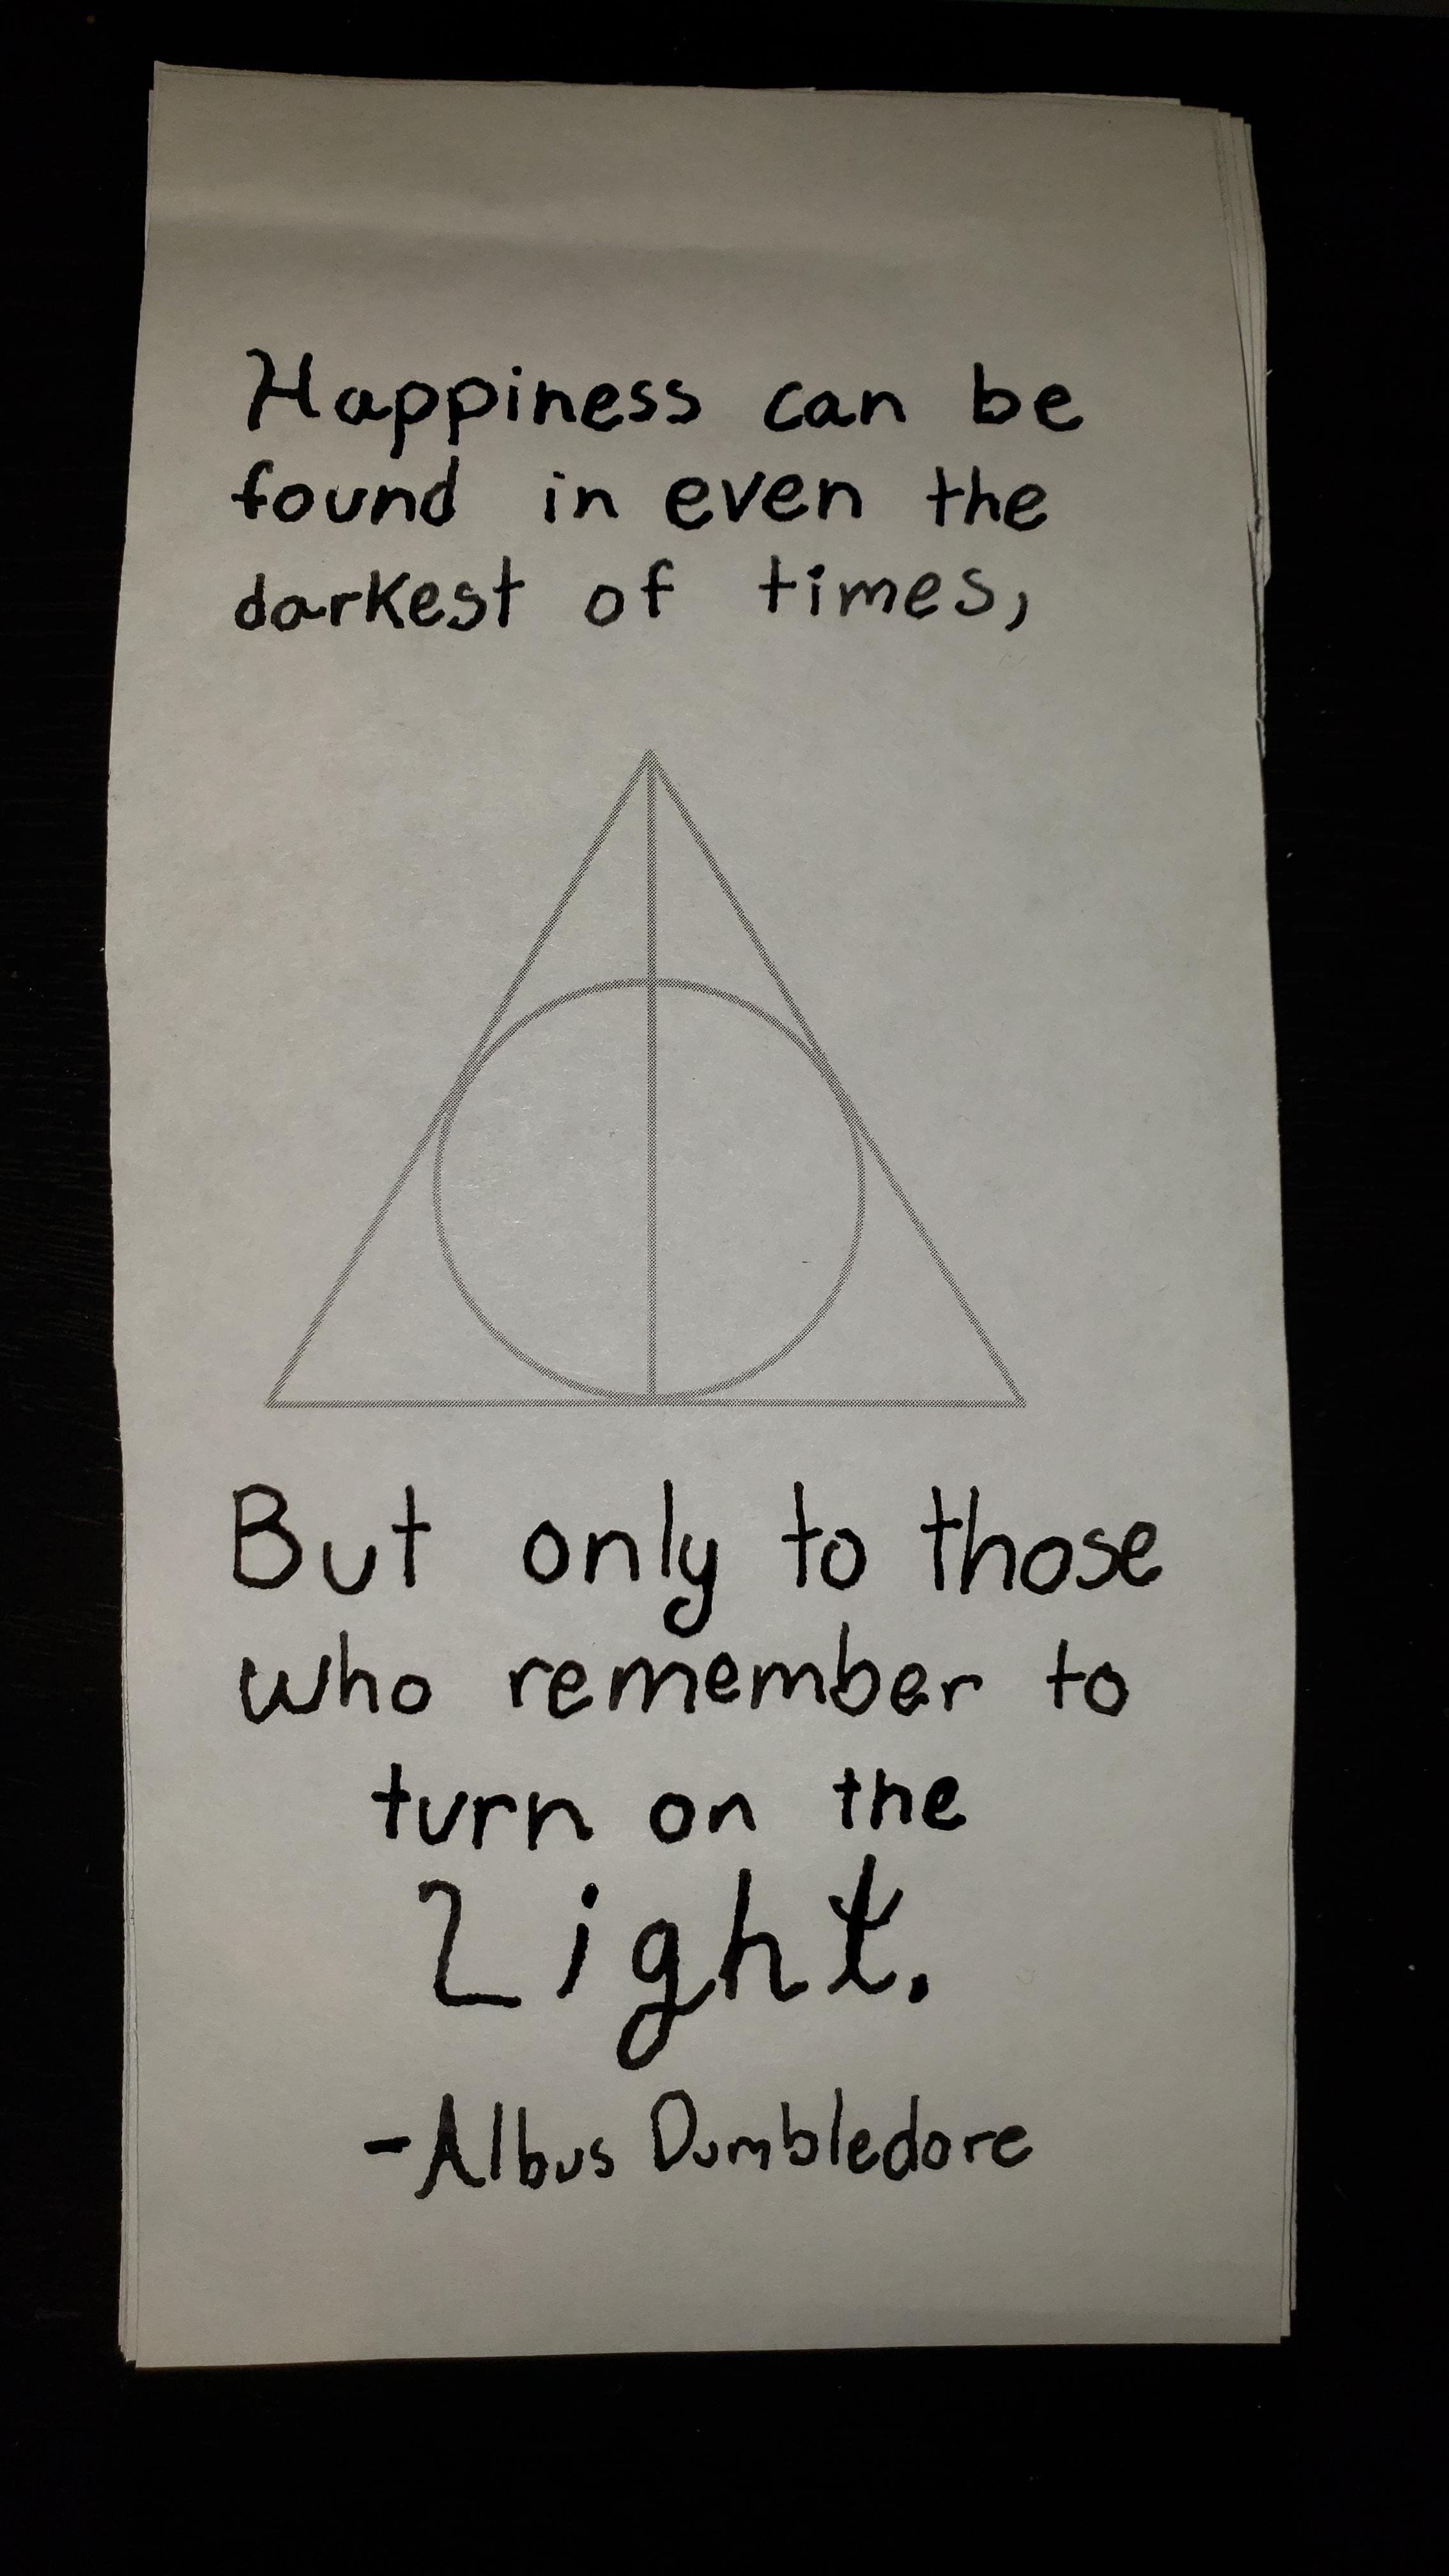 Happiness can be
found in even the
darkest of times,
But only to those
who remember to
turn on the
Light.
-Albus Dumbledore